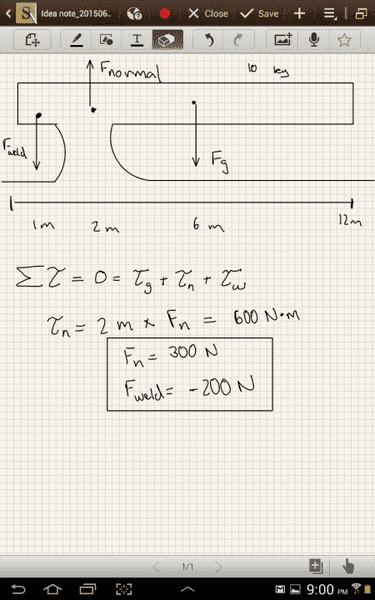 Idea note_201506..
Close
Save
T
Fnormal
10 kg
Fweld
Fg
1m
2m
6m
12m
Στ = 0 = τg + τn + τw
τn = 2 m × Fn = 600 N·m
Fn = 300 N
Fweld = -200 N
1/1
9:00 PM